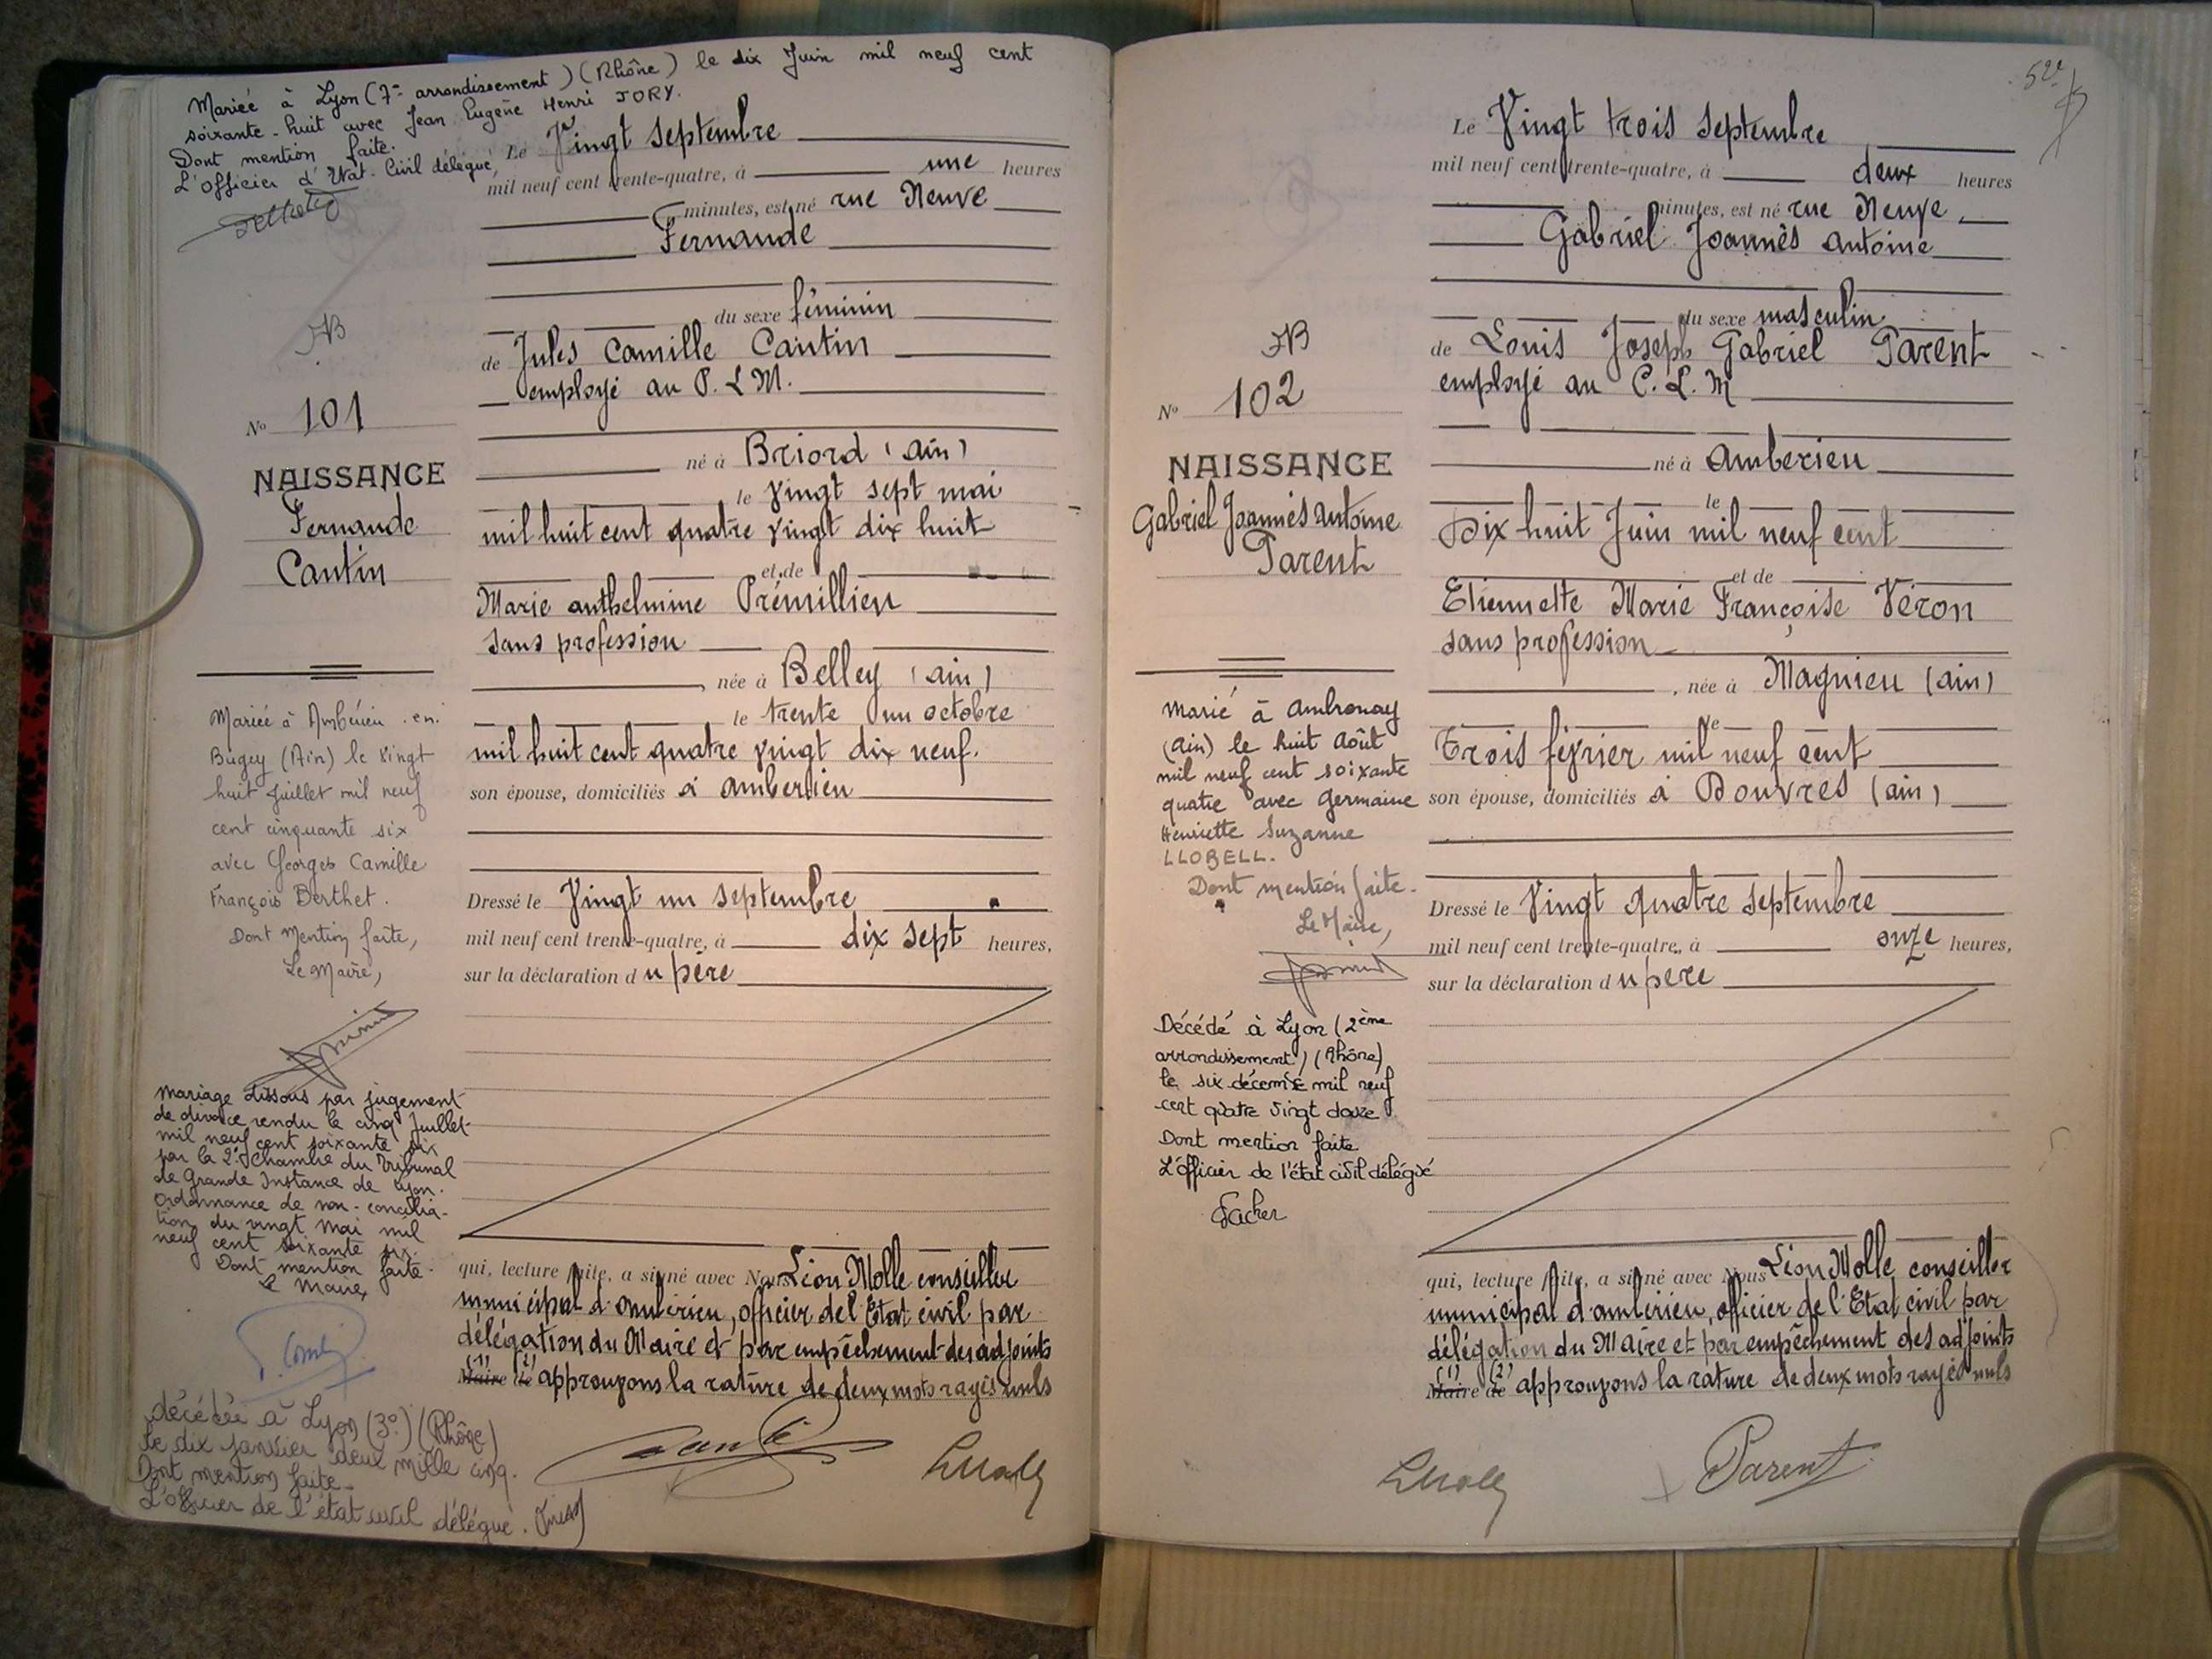 Mariée à Lyon (7e arrondissement) (Rhône) le dix Juin mil neuf cent
soixante-huit avec Jean Eugène Henri JORY.
Dont mention faite.
L'Officier d'Etat-Civil délégué,
Le Vingt septembre
mil neuf cent trente-quatre, à une heures
minutes, est né rue Neuve
Fernande
du sexe féminin
de Jules Camille Cantin
employé au P. L. M.
né à Briord (Ain)
le vingt sept mai
mil huit cent quatre vingt dix huit
et de
Marie anthelmine Prémillieu
sans profession
, née à Belley (Ain)
le trente un octobre
mil huit cent quatre vingt dix neuf.
son épouse, domiciliés à Ambérieu
Dressé le Vingt un septembre
mil neuf cent trente-quatre, à dix sept heures,
sur la déclaration du père
qui, lecture faite, a signé avec Nous Léon Molle conseiller
municipal d'Ambérieu, officier de l'Etat civil par
délégation du Maire et par empêchement des adjoints
(1) (2)
Maire de approuvons la rature de deux mots rayés nuls
JB
No 101
NAISSANCE
Fernande
Cantin
Mariée à Ambérieu-en-
Bugey (Ain) le vingt
huit Juillet mil neuf
cent cinquante six
avec Georges Camille
François Berthet.
Dont Mention faite,
Le Maire,
Mariage dissous par jugement
de divorce rendu le cinq Juillet
mil neuf cent soixante six
par la 2e Chambre du Tribunal
de Grande Instance de Lyon.
Ordonnance de non-concilia-
tion du vingt Mai mil
neuf cent soixante six.
Dont mention faite.
Le Maire,
décédée à Lyon (3e) (Rhône)
le dix janvier deux mille cinq.
Dont mention faite.
L'officier de l'état civil délégué.
52
Le Vingt trois septembre
mil neuf cent trente-quatre, à deux heures
minutes, est né rue Neuve,
Gabriel Joannès Antoine
du sexe masculin
de Louis Joseph Gabriel Parent
employé au P. L. M
né à Ambérieu
le
Dix huit Juin mil neuf cent
et de
Etiennette Marie Françoise Véron
sans profession
, née à Magnieu (Ain)
le
Trois février mil neuf cent
son épouse, domiciliés à Douvres (Ain)
Dressé le Vingt quatre septembre
mil neuf cent trente-quatre, à onze heures,
sur la déclaration du père
qui, lecture faite, a signé avec Nous Léon Molle conseiller
municipal d'Ambérieu, officier de l'Etat civil par
délégation du Maire et par empêchement des adjoints
(1) (2)
Maire de approuvons la rature de deux mots rayés nuls
Parent
JB
No 102
NAISSANCE
Gabriel Joannès Antoine
Parent
Marié à Ambronay
(Ain) le huit Août
mil neuf cent soixante
quatre avec Germaine
Henriette Suzanne
LLOBELL.
Dont mention faite.
Le Maire,
Décédé à Lyon (2ème
arrondissement) (Rhône)
le six décembre mil neuf
cent quatre vingt douze
Dont mention faite
L'officier de l'état civil délégué